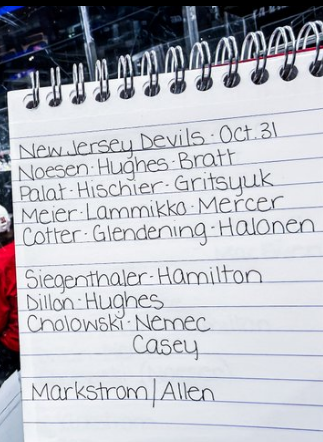 New Jersey Devils · Oct. 31
Noesen · Hughes · Bratt
Palat · Hischier · Gritsyuk
Meier · Lammikko · Mercer
Cotter · Glendening · Halonen
Siegenthaler · Hamilton
Dillon · Hughes
Cholowski · Nemec
Casey
Markstrom/Allen